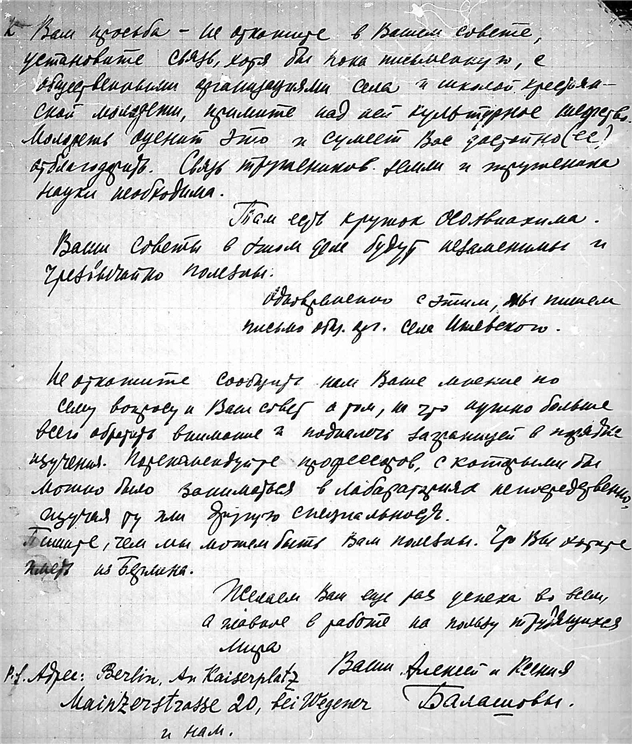 К Вам просьба – не откажите в Вашем совете,
установите связь, хотя бы пока письменную, с
общественными организациями села и школой крестьян-
ской молодежи, примите над ней культурное шефство.
Молодежь оценит это и сумеет Вас достойно (ее)
отблагодарить. Связь тружеников земли и труженика
науки необходима.
Там есть кружок Осоавиахима.
Ваши советы в этом деле будут незаменимы и
чрезвычайно полезны.
Одновременно с этим, мы пишем
письмо общ. орг. села Ижевского.
Не откажите сообщить нам Ваше мнение по
сему вопросу и Ваш совет о том, на что нужно больше
всего обратить внимание и подналечь заграницей в порядке
изучения. Порекомендуйте профессоров, с которыми бы
можно было заниматься в лабараториях непосредственно,
изучая ту или другую специальность.
Пишите, чем мы можем быть Вам полезны. Что Вы хотите
иметь из Берлина.
Желаем Вам еще раз успеха во всем,
а главное в работе на пользу трудящихся
мира
Ваши Алексей и Ксения
Балашовы.
P.S. Адрес: Berlin, An Kaiserplatz
Mainzerstrasse 20, bei Wegener
и нам.